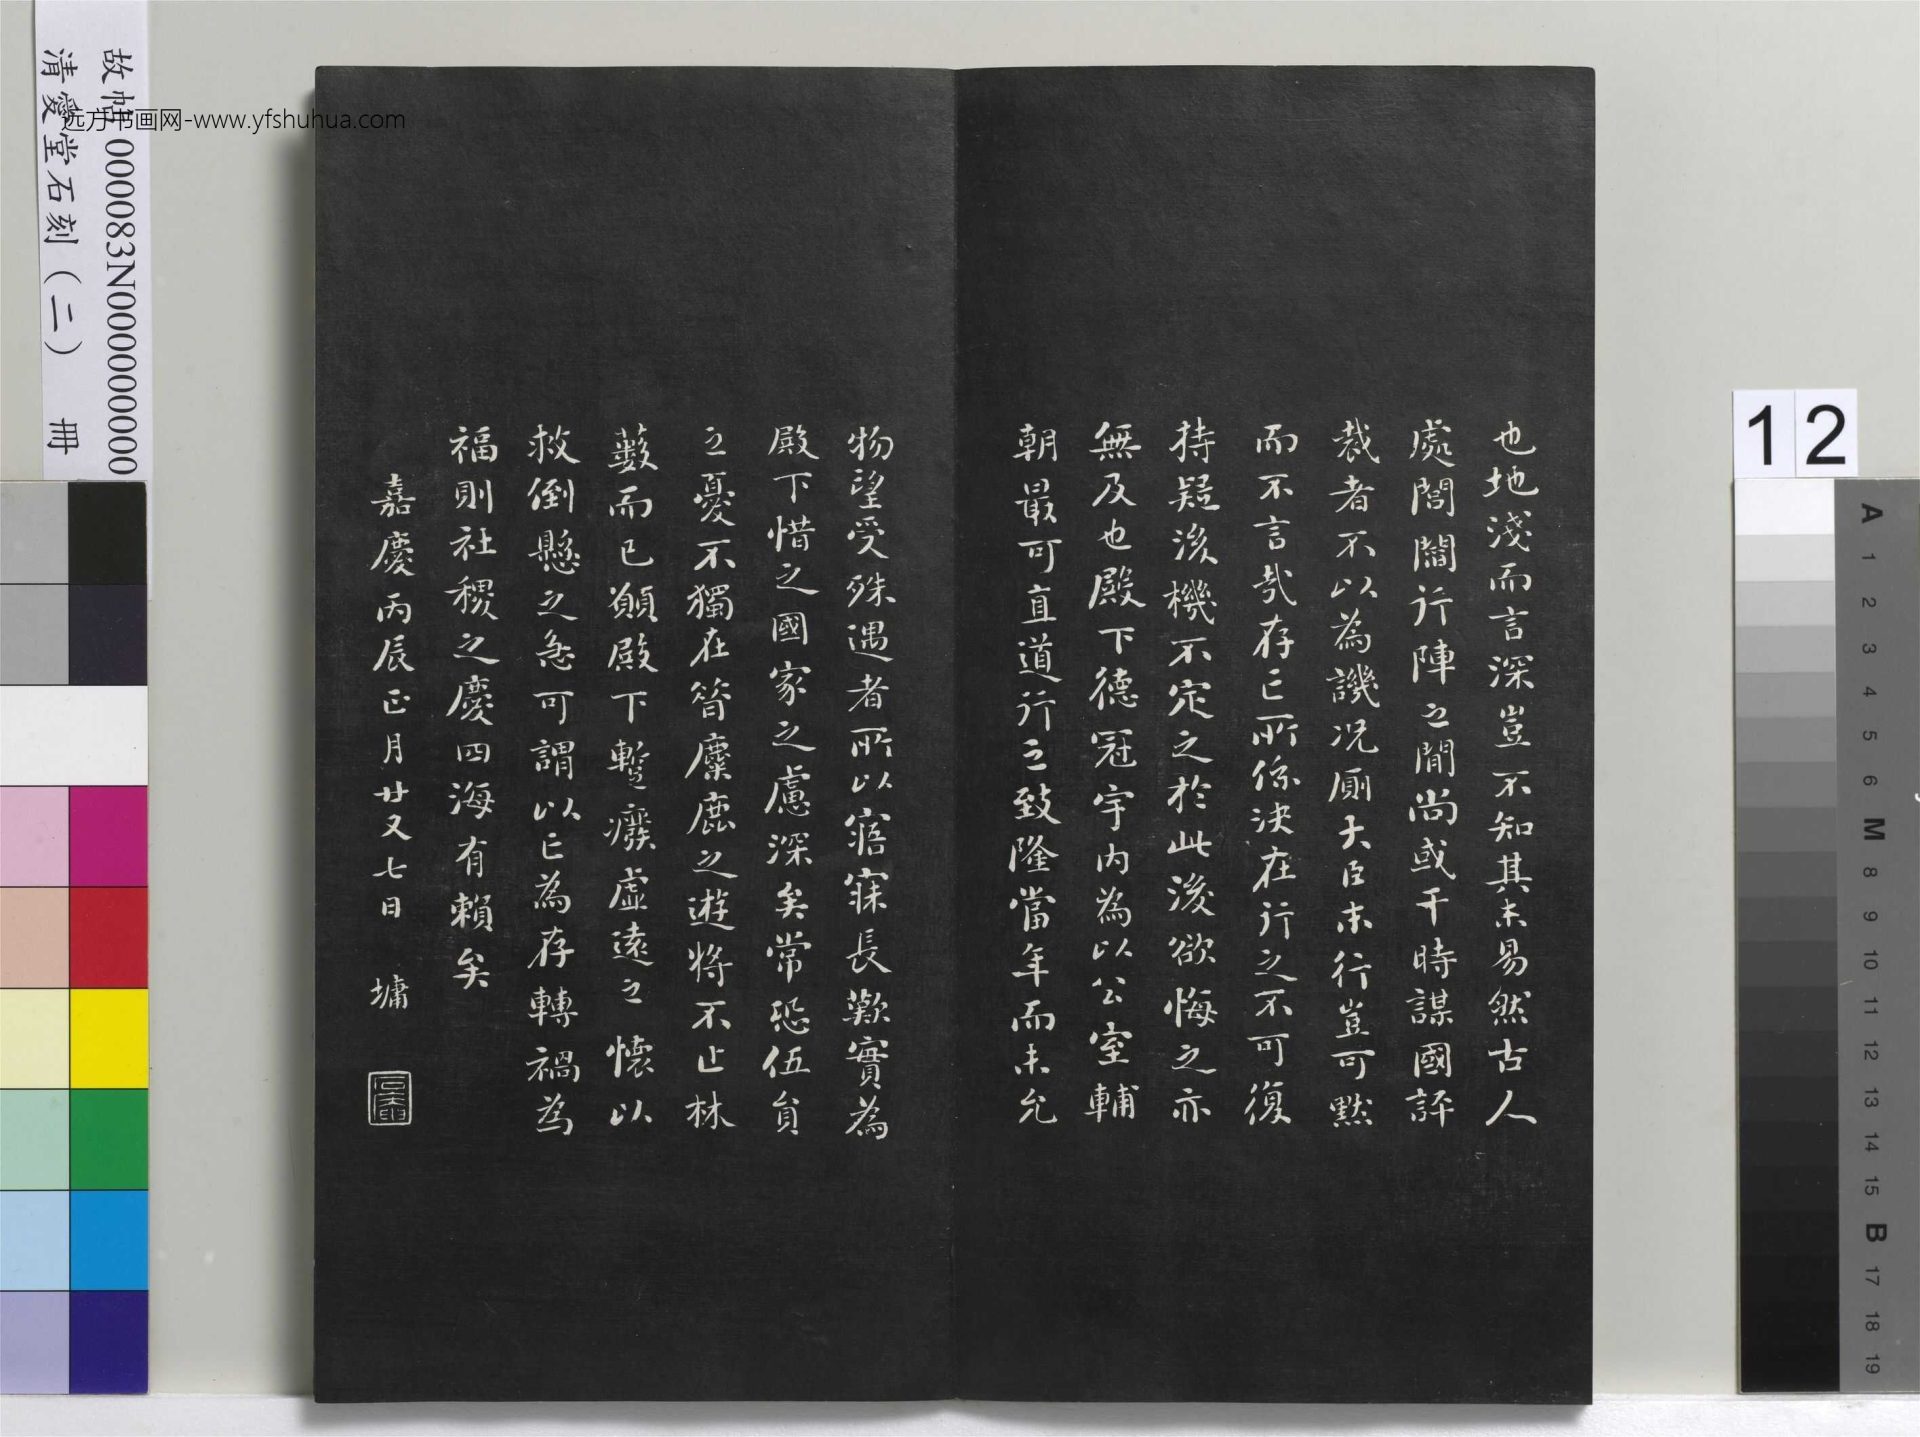 也地淺而言深豈不知其未易然古人
處閭閻行陣之間尚或干時謀國評
裁者不以為譏况厠大臣末行豈可默
而不言哉存亡所係決在行之不可復
持疑後機不定之於此後欲悔之亦
無及也殿下德冠宇内為以公室輔
朝最可直道行之致隆當年而未允
物望受殊遇者所以寤寐長歎實為
殿下惜之國家之慮深矣常恐伍員
之憂不獨在昔麋鹿之遊將不止林
藪而已願殿下暫廢虛遠之懷以
救倒懸之急可謂以亡為存轉禍為
福則社稷之慶四海有賴矣
嘉慶丙辰正月廿又七日 墉
故帖000083N000000000
清愛堂石刻(二) 冊
远方书画网-www.yfshuhua.com
12
A 1 2 3 4 5 6 M 8 9 10 11 12 13 14 15 B 17 18 19